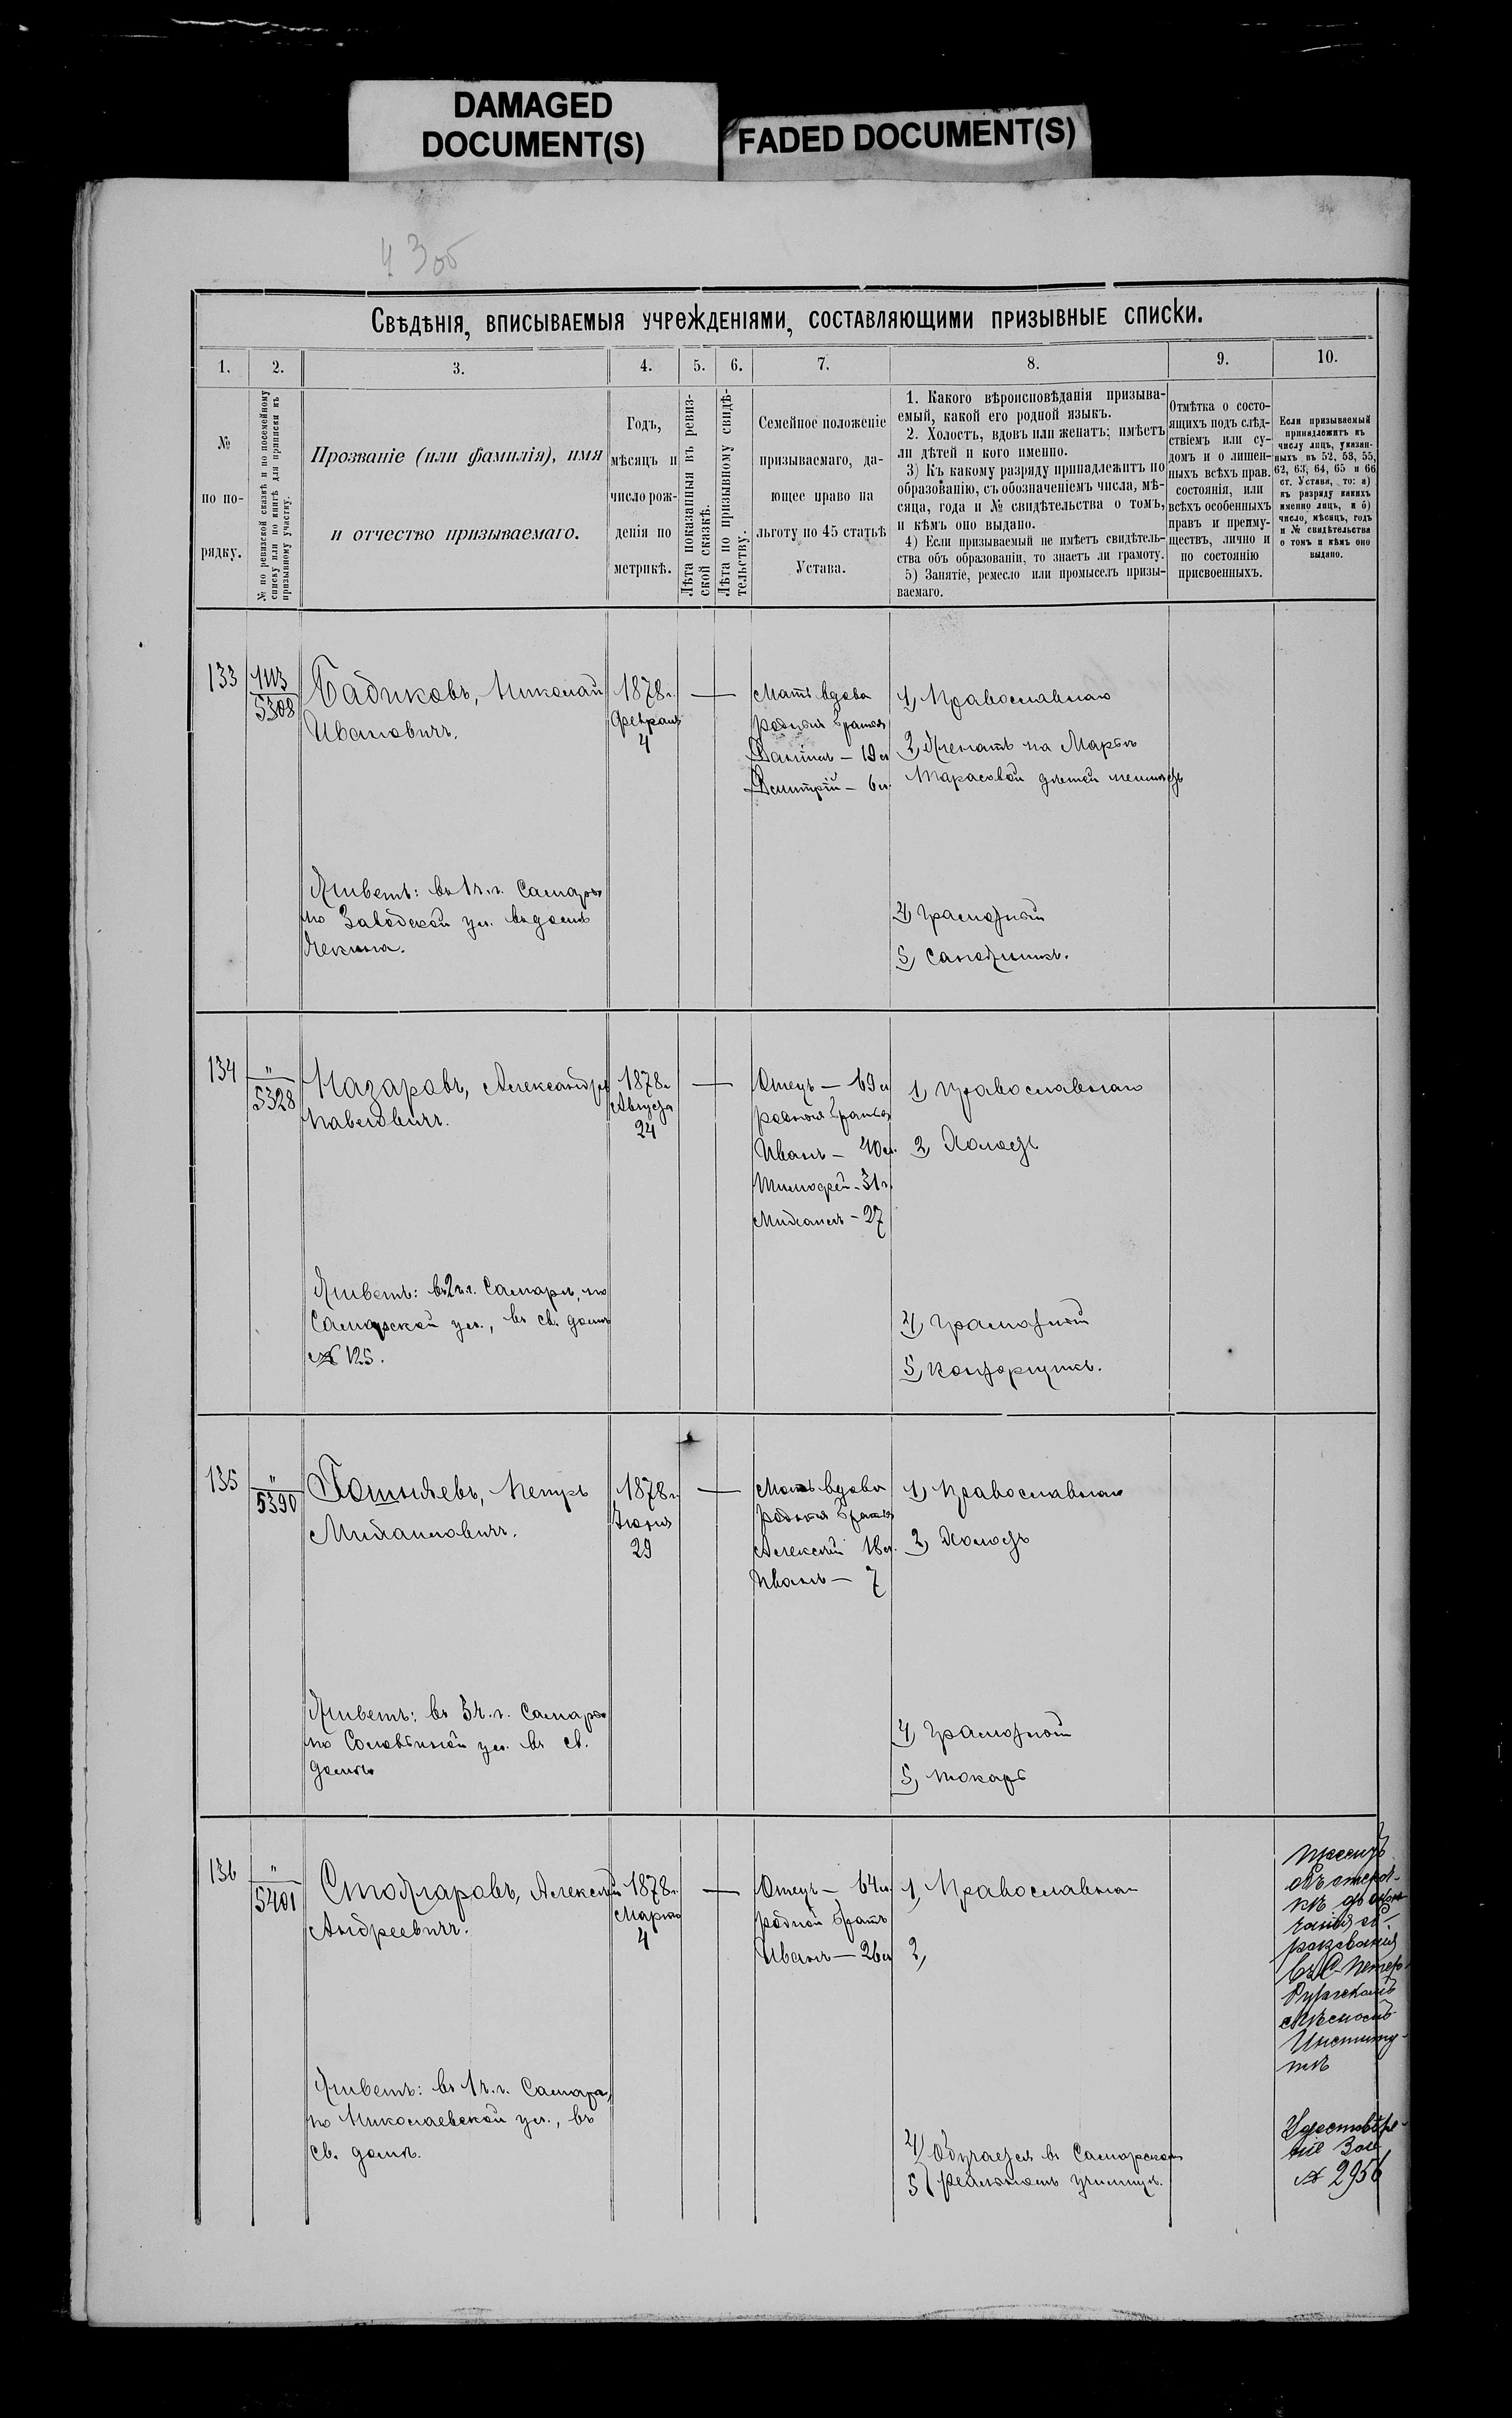 DAMAGED
DOCUMENT(S)
FADED DOCUMENT(S)
43об
Свѣдѣнія, вписываемыя учрежденіями, составляющими призывные списки.
1.
2.
3.
4.
5.
6.
7.
8.
9.
10.
№
по по-
рядку.
№ по ревизской сказкѣ и по посемейному
списку или по книгѣ для приписки къ
призывному участку.
Прозваніе (или фамилія), имя
и отчество призываемаго.
Годъ,
мѣсяцъ и
число рож-
денія по
метрикѣ.
Лѣта показанныя въ ревиз-
ской сказкѣ.
Лѣта по призывному свидѣ-
тельству.
Семейное положеніе
призываемаго, да-
ющее право на
льготу по 45 статьѣ
Устава.
1. Какого вѣроисповѣданія призыва-
емый, какой его родной языкъ.
2. Холостъ, вдовъ или женатъ; имѣетъ
ли дѣтей и кого именно.
3) Къ какому разряду принадлежитъ по
образованію, съ обозначеніемъ числа, мѣ-
сяца, года и № свидѣтельства о томъ,
и кѣмъ оно выдано.
4) Если призываемый не имѣетъ свидѣтель-
ства объ образованіи, то знаетъ ли грамоту.
5) Занятіе, ремесло или промыселъ призы-
ваемаго.
Отмѣтка о состо-
ящихъ подъ слѣд-
ствіемъ или су-
домъ и о лишен-
ныхъ всѣхъ прав.
состоянія, или
всѣхъ особенныхъ
правъ и преиму-
ществъ, лично и
по состоянію
присвоенныхъ.
Если призываемый
принадлежитъ къ
числу лицъ, указан-
ныхъ въ 52, 53, 55,
62, 63, 64, 65 и 66
ст. Устава, то: а)
къ разряду какихъ
именно лицъ, и б)
число, мѣсяцъ, годъ
и № свидѣтельства
о томъ и кѣмъ оно
выдано.
133
5308
Бадиковъ, Николай
Ивановичъ.
1878 г.
Февраля
4
Мать вдова
родныя братья
Данiилъ — 19 л
Дмитрій — 6 л.
1) Православнаго
2) Женатъ на Марѳѣ
Тарасовой дѣтей неимѣетъ
Живетъ: въ 1 ч. г. Самары
по Заводской ул. въ домѣ
Чекина.
4) Грамотный
5) Сапожникъ.
134
"
5328
Назаровъ, Александръ
Павловичъ.
1878 г
Августа
24
Отецъ — 69 л
родныя братья
Иванъ — 40 л.
Тимофей — 31 г.
Михаилъ — 27
1) Православнаго
2) Холостъ
Живетъ: въ 2 ч. г. Самары, по
Самарской ул., въ св. домѣ
№ 125.
4) Грамотный
5) Конторщикъ.
135
"
5390
Петръ
Михаиловичъ.
1878 г
Іюня
29
Мать вдова
родныя братья
Алексѣй 18 л.
Иванъ — 7
1) Православнаго
2) Холостъ
Живетъ: въ 3 ч. г. Самары
по Соловьиной ул. въ св.
домѣ
4) Грамотный
5) Токарь
136
"
5401
Столяровъ, Алексѣй
Андреевичъ.
1878 г
Марта
4
Отецъ — 64 л.
родной братъ
Иванъ — 26 л
1) Православнаго
2)
Проситъ
объ отсроч-
кѣ до окон-
чанія об-
разованія
въ С. Петер-
бургскомъ
Лѣсномъ
Институ-
тѣ
Живетъ: въ 1 ч. г. Самары,
по Николаевской ул., въ
св. домѣ.
4) Обучается въ Самарскомъ
5) реальномъ училищѣ.
№ 2956